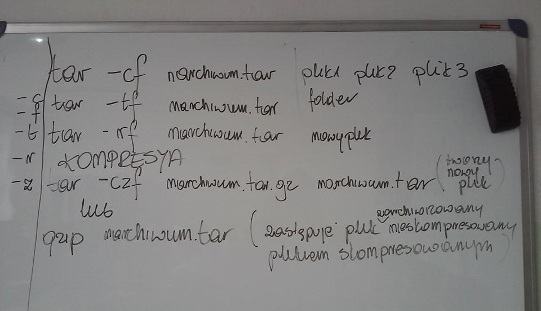 tar -cf narchiwum.tar plik1 plik2 plik3
-c tar -tf marchiwum.tar folder
-f
-t tar -rf marchiwum.tar nowyplik
-r KOMPRESYA
-z tar -czf marchiwum.tar.gz marchiwum.tar (tworzy nowy plik)
lub
gzip marchiwum.tar (zastępuje plik zarchiwizowany nieskompresowany
plikiem skompresowanym)